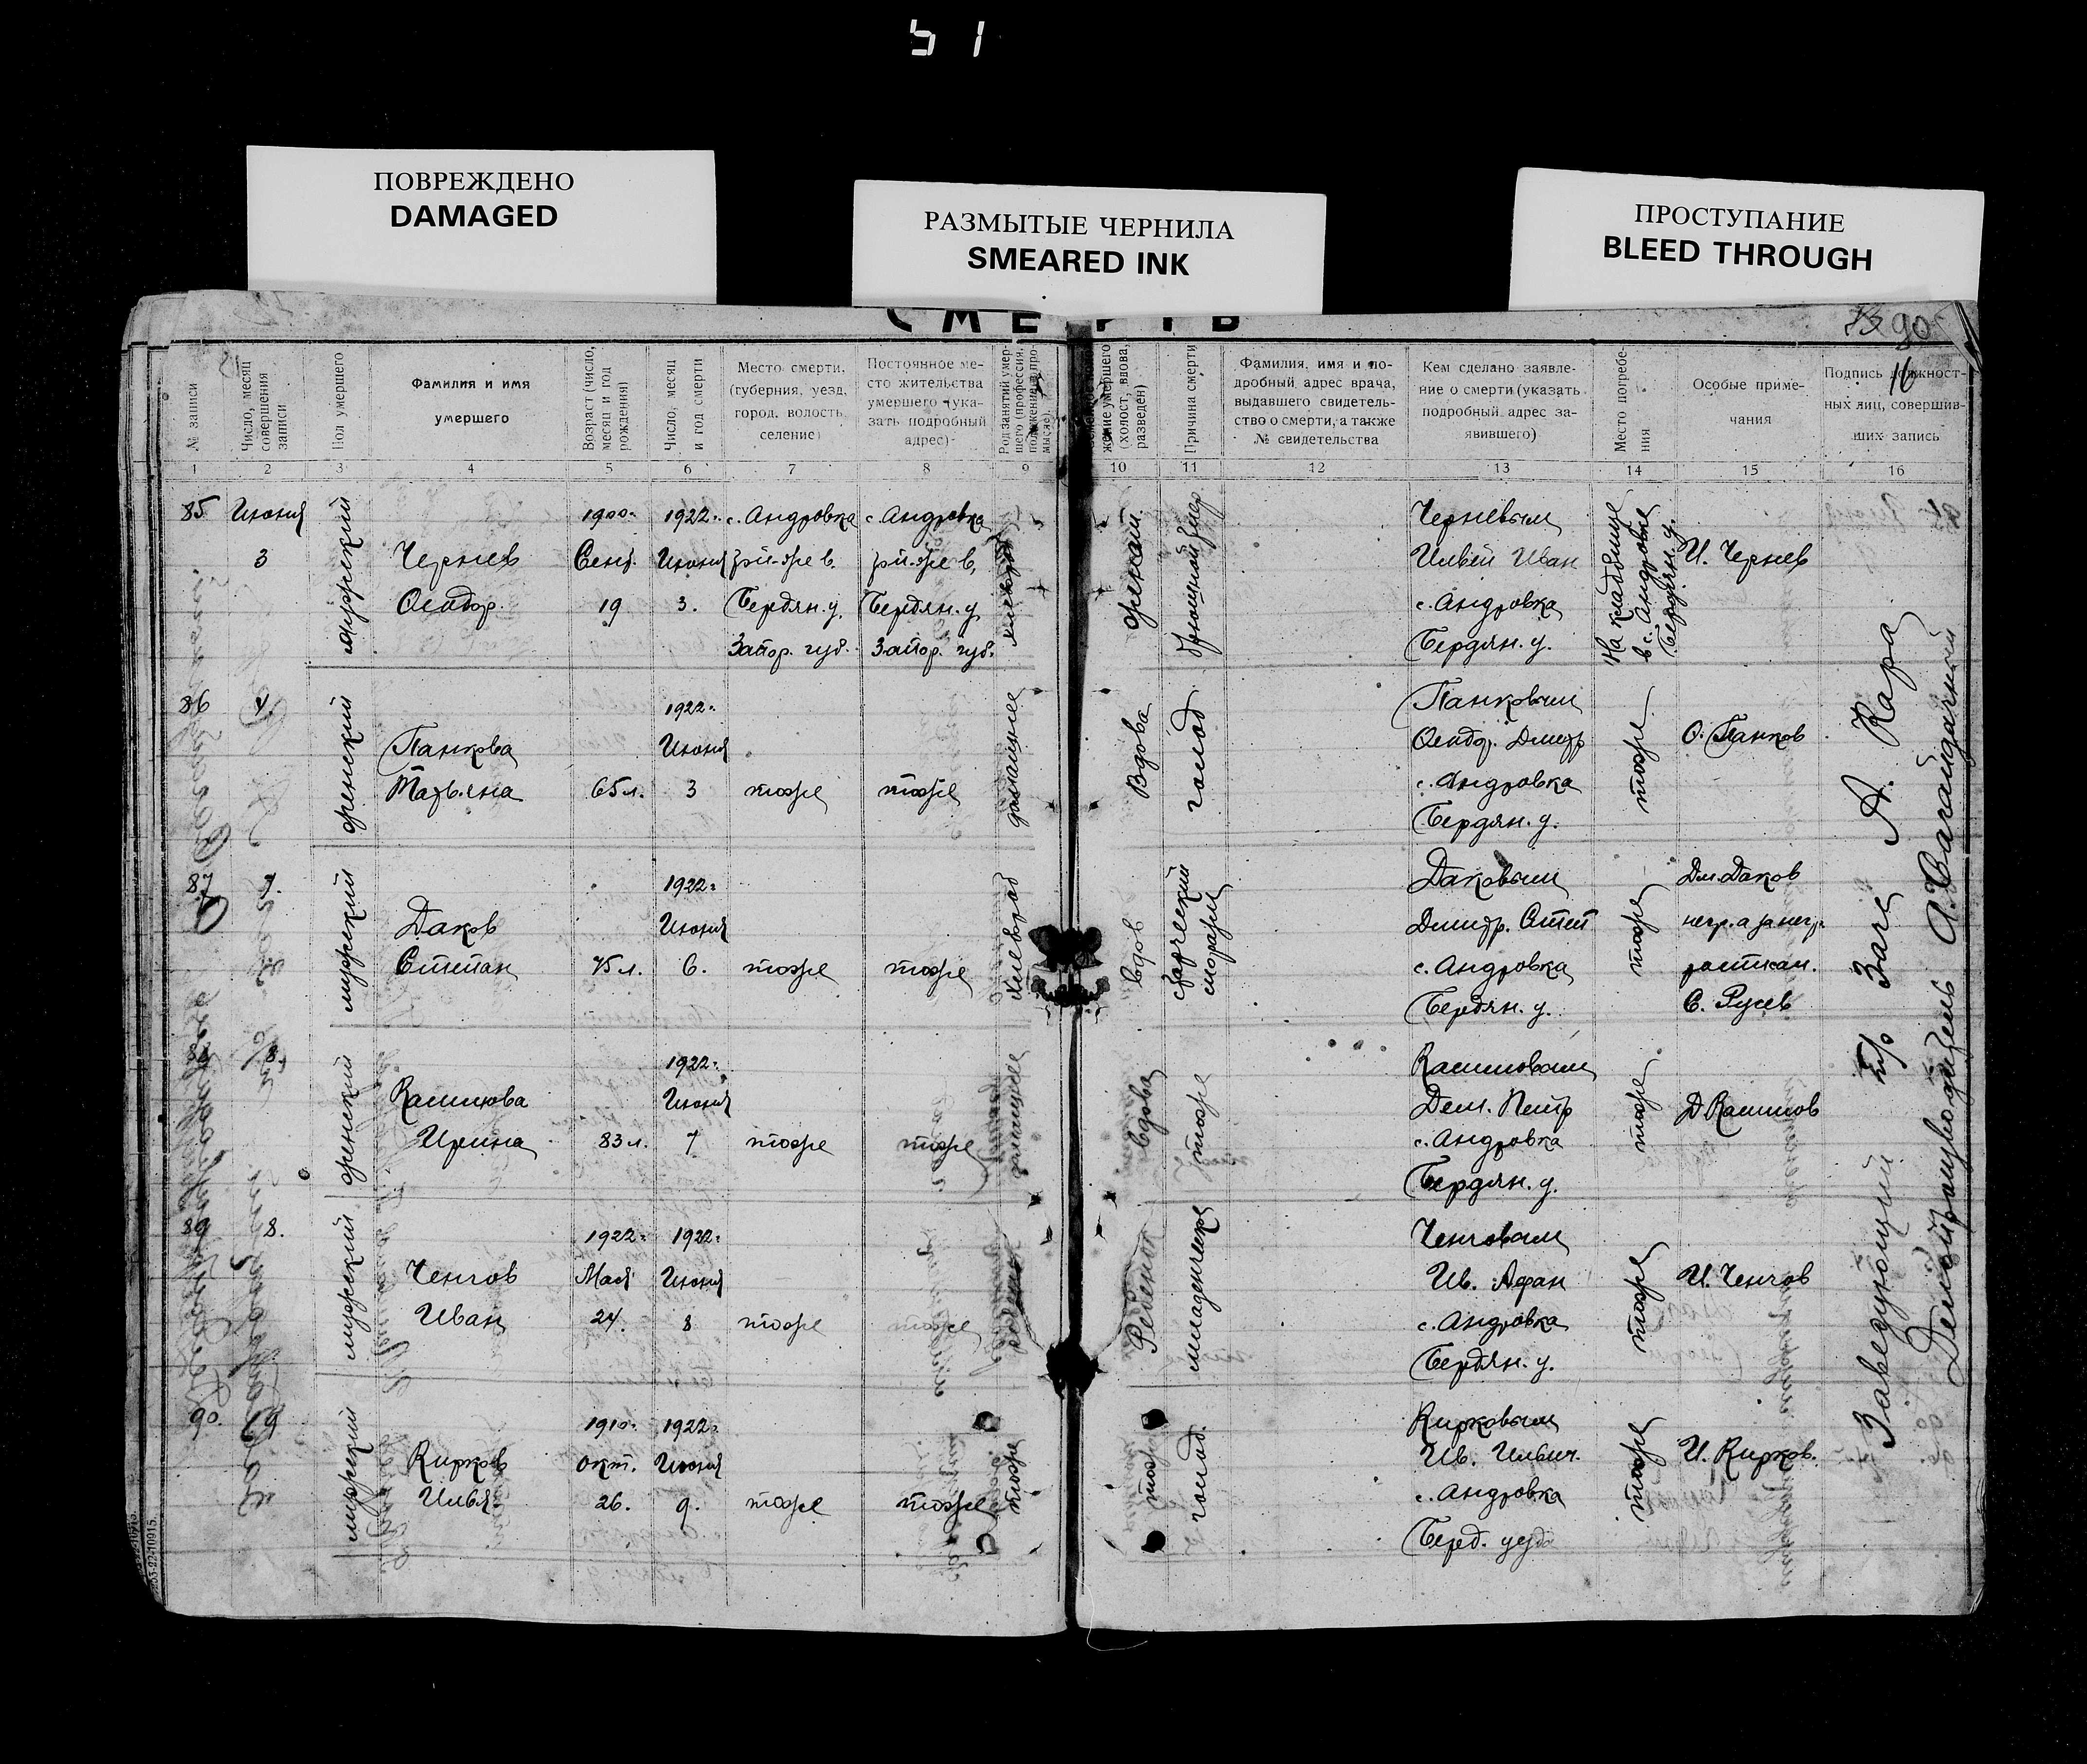 51
ПОВРЕЖДЕНО
DAMAGED
РАЗМЫТЫЕ ЧЕРНИЛА
SMEARED INK
ПРОСТУПАНИЕ
BLEED THROUGH
90
16
№ записи
Число, месяц совершения записи
Пол умершего
Фамилия и имя умершего
Возраст (число, месяц и год рождения)
Число, месяц и год смерти
Место смерти, (губерния, уезд, город, волость, селение)
Постоянное место жительства умершего (указать подробный адрес)
жение умершего (хояост, вдова, разведен)
Причина смерти
Фамилия, имя и подробный адрес врача, выдавшего свидетельство о смерти, а также № свидетельства
Кем сделано заявление о смерти (указать подробный адрес заявившего)
Место погребения
Особые примечания
Подпись должностных лиц, совершивших запись
1 2 3 4 5 6 7 8 9 10 11 12 13 14 15 16
85 Июня 1900. 1922. с. Андровка с. Андровка Черневым
3 мужский Чернев Сент. Июня Ильей Иван И. Чернев
19 3. Бердян. у. Бердян. у. с. Андровка
Запор. губ. Запор. губ. Бердян. у.
женат.
На кладбище в с. Андровке Бердян. у.
86 1922. Панковым
женский Панкова Июня Дмитр О. Панков
Татьяна 65 л. 3 тоже тоже Вдова голод с. Андровка тоже
Бердян. у.
87 7. 1922. Даковым Дм. Даков
мужский Даков Июня Дмитр. Степ негр. а за негр.
Степан 75 л. 6. тоже тоже хлебороб вдов с. Андровка тоже росписал.
Бердян. у. С. Русев
88 8. 1922.
женский Июня Дем. Петр
Ирина 83 л. 7 тоже тоже вдова тоже с. Андровка тоже
Бердян. у.
89 8. 1922. 1922. Ченговым
мужский Ченгов Мая Июня Ив. Афан И. Ченгов
Иван 24. 8 тоже тоже Ребенок с. Андровка тоже
Бердян. у.
90. 9 1910. 1922. Кирковым
мужский Кирков окт. Июня Ив. Ильич. И. Кирков.
Илья. 26. 9. тоже тоже тоже тоже голод с. Андровка тоже
Берд. уезда
Заведующий п/о Загс А. Кара
Делопроизводитель